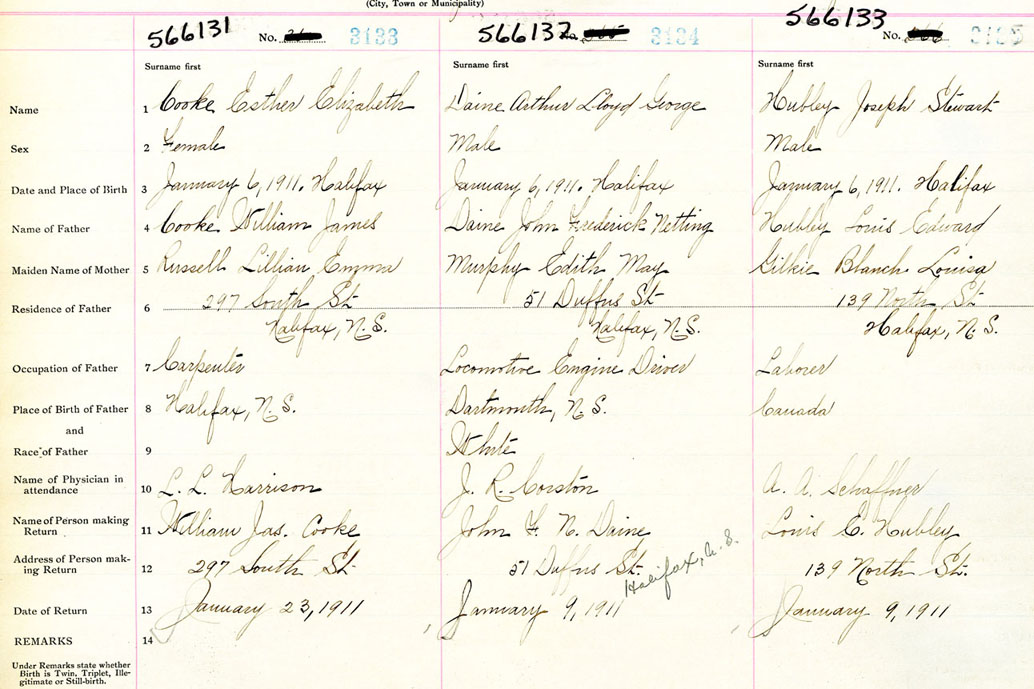 (City, Town or Municipality)
566131 No. 3133 566132 No. 3134 566133 No. 3135
Surname first Surname first Surname first
Name 1 Cooke Esther Elizabeth Daine Arthur Lloyd George Hubley Joseph Stewart
Sex 2 Female Male Male
Date and Place of Birth 3 January 6, 1911. Halifax January 6, 1911. Halifax January 6, 1911. Halifax
Name of Father 4 Cooke William James Daine John Frederick Netting Hubley Louis Edward
Maiden Name of Mother 5 Russell Lillian Emma Murphy Edith May Gilkie Blanch Louisa
Residence of Father 6 297 South St 51 Duffus St 139 North St
Halifax, N.S. Halifax, N.S. Halifax, N.S.
Occupation of Father 7 Carpenter Locomotive Engine Driver Laborer
Place of Birth of Father 8 Halifax, N.S. Dartmouth, N.S. Canada
and
Race of Father 9 White
Name of Physician in
attendance 10 L. L. Harrison J. R. Corston A. A. Schaffner
Name of Person making
Return 11 William Jas. Cooke John F. N. Daine Louis E. Hubley
Address of Person mak-
ing Return 12 297 South St. 51 Duffus St. Halifax, N.S. 139 North St.
Date of Return 13 January 23, 1911 January 9, 1911 January 9, 1911
REMARKS 14
Under Remarks state whether
Birth is Twin, Triplet, Ille-
gitimate or Still-birth.